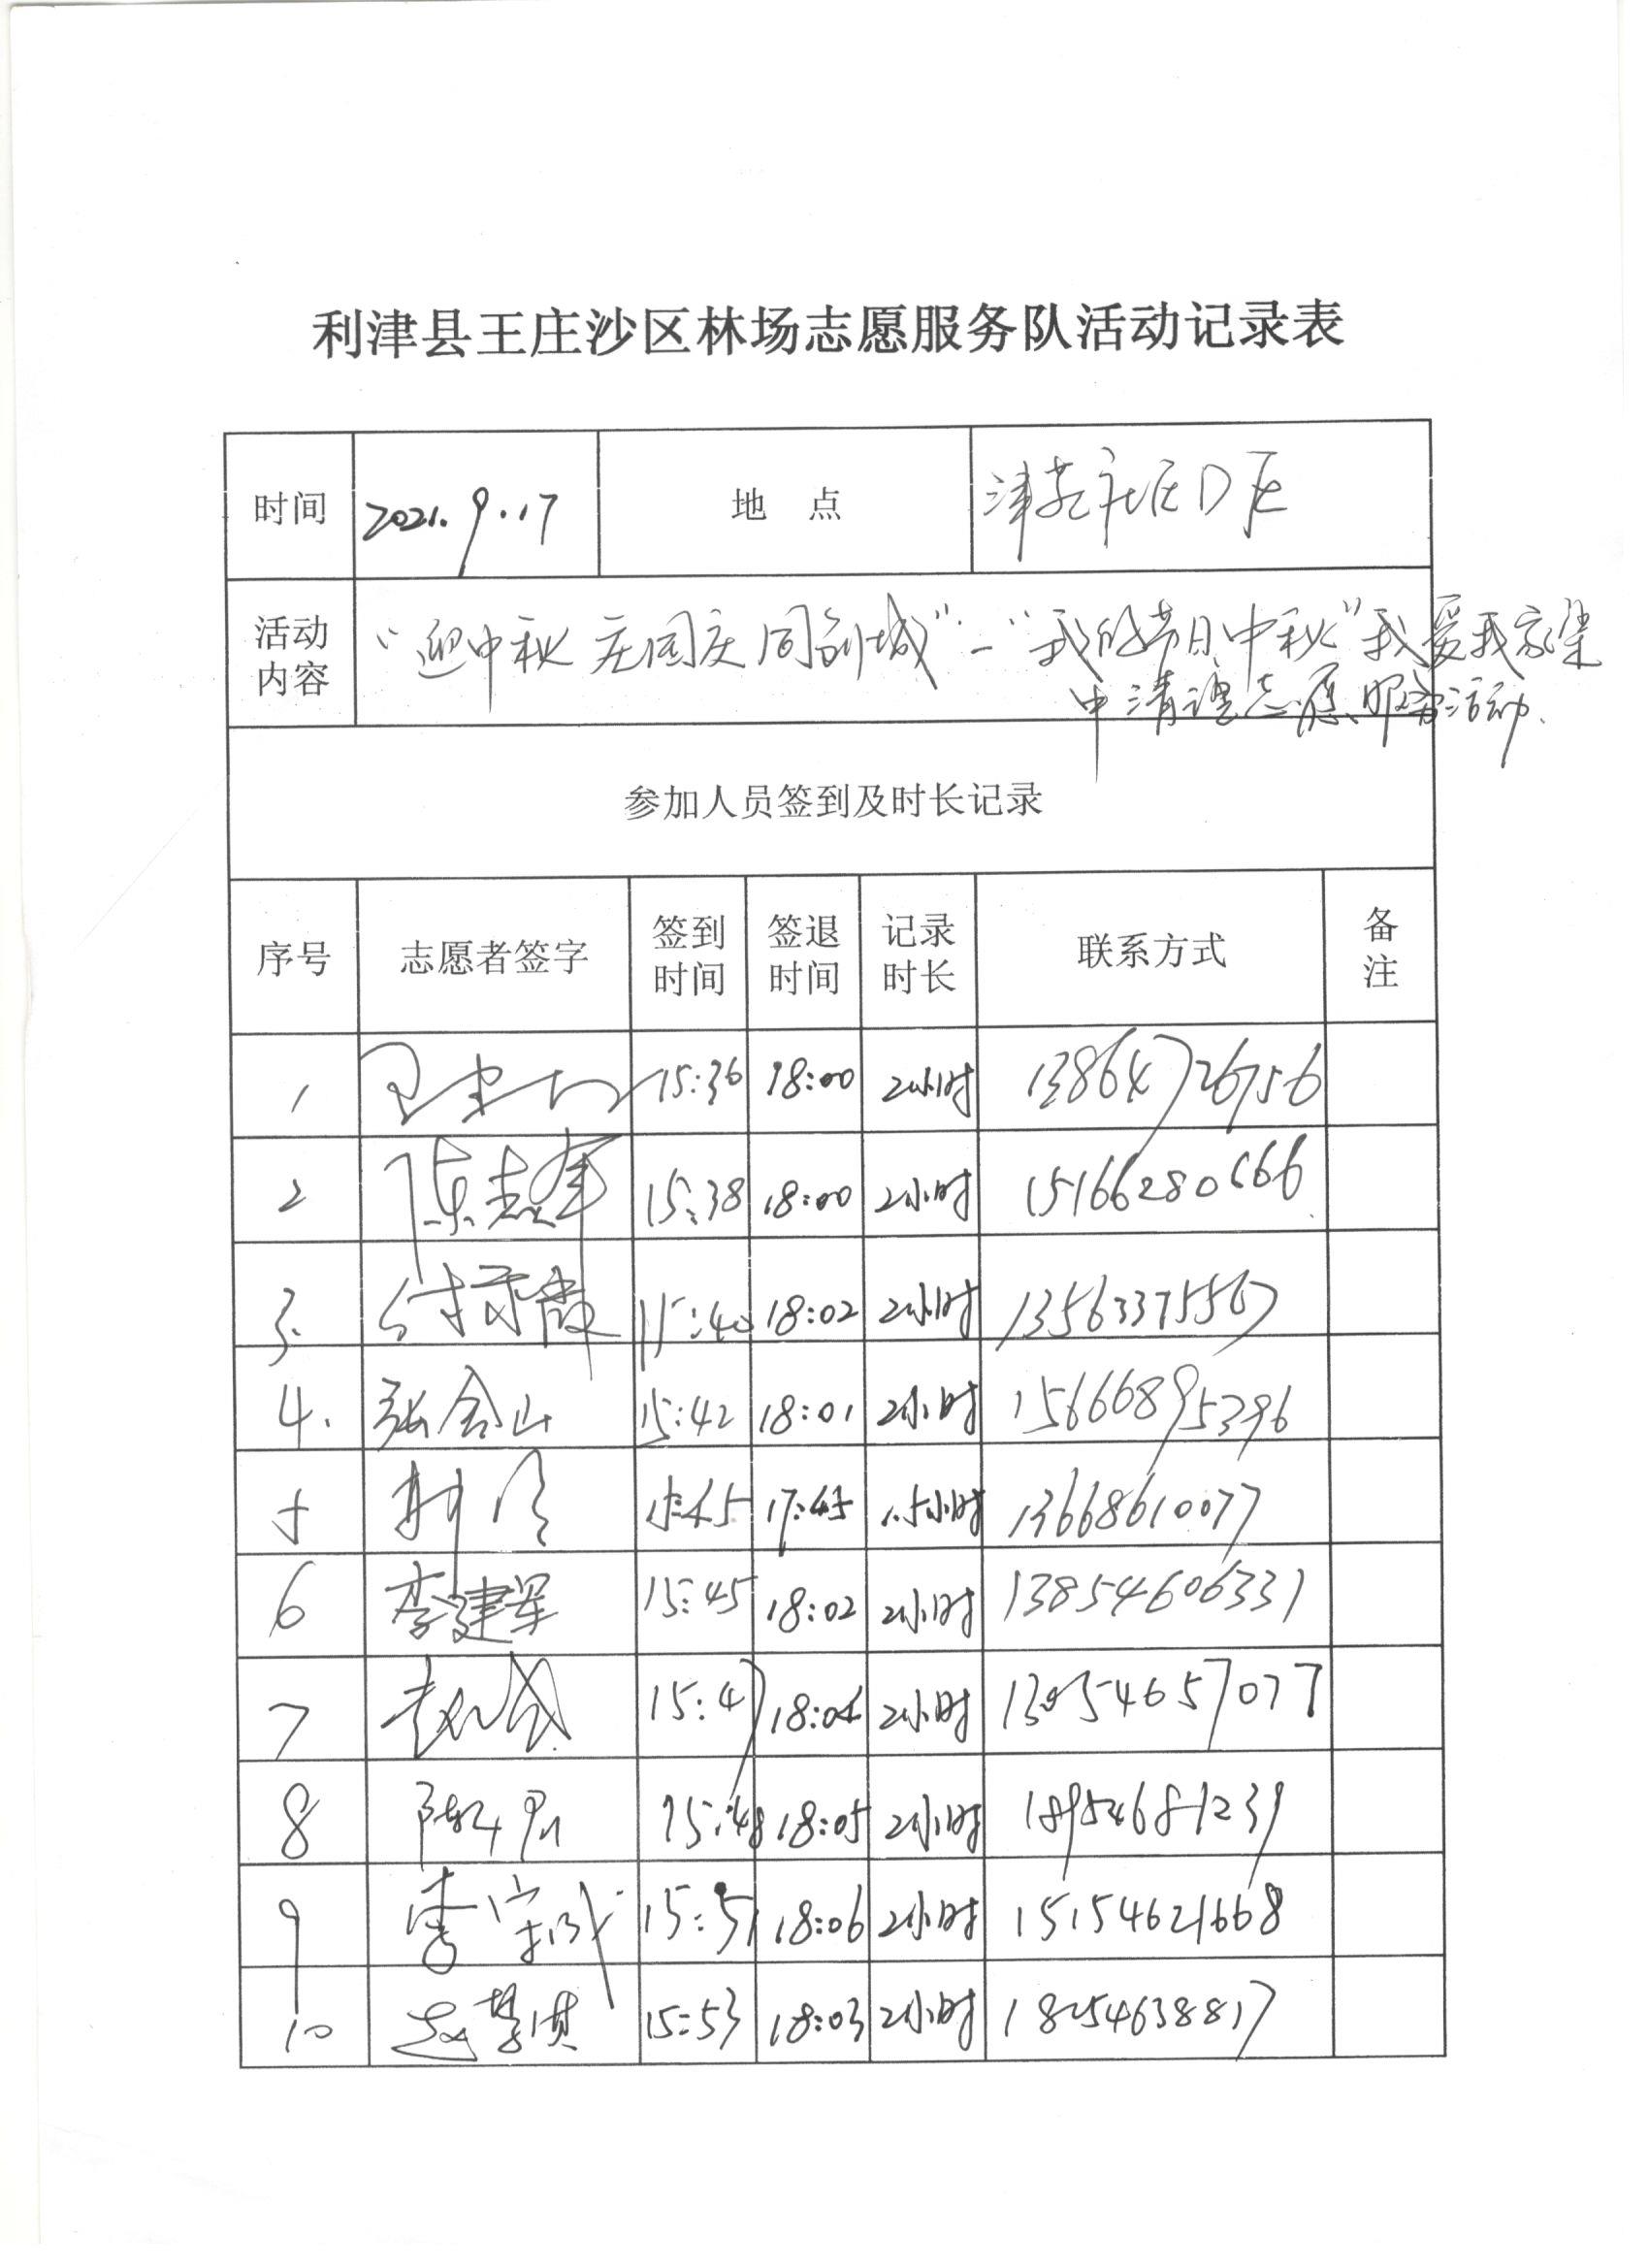 利津县王庄沙区林场志愿服务队活动记录表
时间 2021.9.17 地 点 津苑社区D区
活动内容 “迎中秋 庆国庆 同创城”—“我的节日中秋”我爱我家集
中清理志愿服务活动.
参加人员签到及时长记录
序号 志愿者签字 签到时间 签退时间 记录时长 联系方式 备注
1 15:36 18:00 2小时 13864726756
2 陈志军 15:38 18:00 2小时 15166280666
3. 15:40 18:02 2小时 13563375567
4. 张金山 15:42 18:01 2小时 15666895396
5 15:45 17:45 1.5小时 13668610077
6 李建军 15:45 18:02 2小时 13854606331
7 赵成 15:47 2小时 13954657077
8 15:48 18:05 2小时 18954681239
9 李宗成 15:51 18:06 2小时 15154621668
10 赵慧淇 15:53 18:03 2小时 18254638817